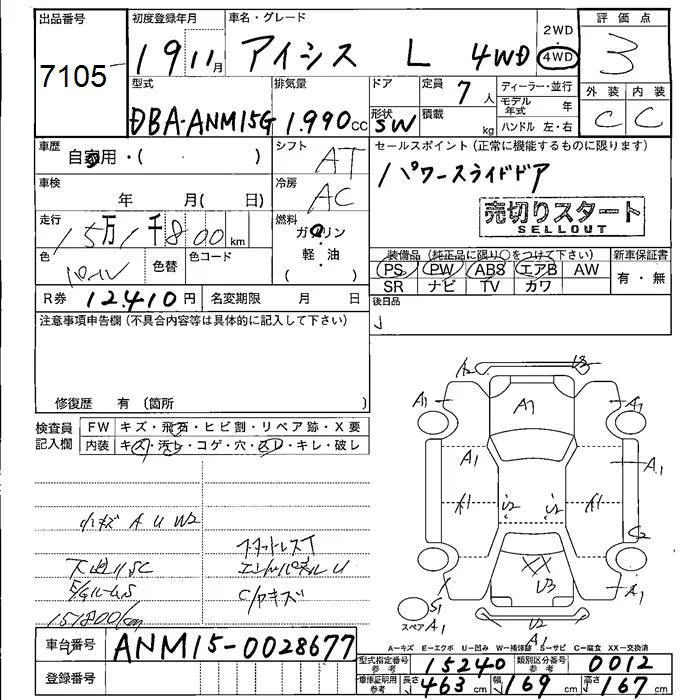 出品番号 初度登録年月 車名・グレード 2WD 評価点
7105 19 11月 アイシス L 4WD 4WD 3
型式 排気量 ドア 定員 7人 ディーラー・並行 外装 内装
DBA-ANM15G 1.990cc 形状 SW 積載 kg モデル年式 年 C C
ハンドル 左・右
車歴 自家用・( ) シフト AT セールスポイント(正常に機能するものに限ります)
車検 年 月( 日) 冷房 AC パワースライドドア
走行 15万1千800km 燃料 ガソリン 売切りスタート
軽・油 SELLOUT
色 色替 色コード ( ) 装備品(純正品に限り○をつけて下さい) 新車保証書
PS PW ABS エアB AW 有・無
SR ナビ TV カワ
R券 12.410円 名変期限 月 日 後日品
注意事項申告欄(不具合内容等は具体的に記入して下さい)
修復歴 有 (箇所 )
A2 U2
A1 A1 A1
A1 A1
A1 U2 U2 A1
C2
XX
U3
S1 A1
スペア A1 U2
A1
検査員記入欄 FW キズ・飛石・ヒビ割・リペア跡・X要
内装 キズ・汚レ・コゲ・穴・スレ・キレ・破レ
小キズ A U W2
スタットレスT
下廻リSC エンドパネルU
C/Pキズ
151800km
車台番号 ANM15-0028677
登録番号
A-キズ E-エクボ U-凹み W-補修跡 S-サビ C-腐食 XX-交換済
型式指定番号 参考 15240 類別区分番号 参考 0012
車庫証明用 参考 長さ 463cm 幅 169cm 高さ 167cm